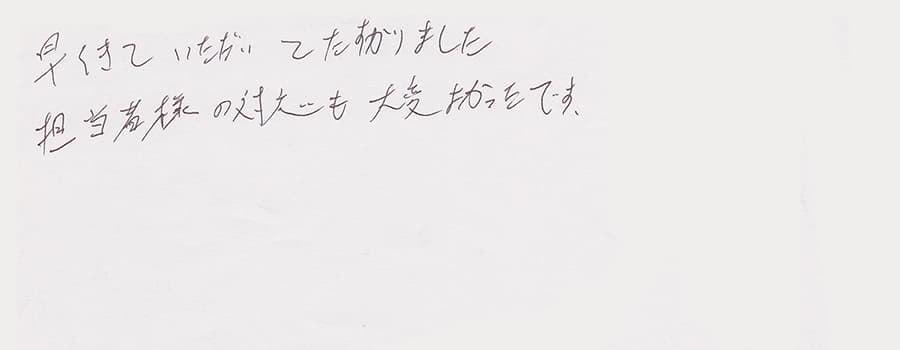 早くきて いただい てたすかりました
担当者様の対応も 大変よかったです。